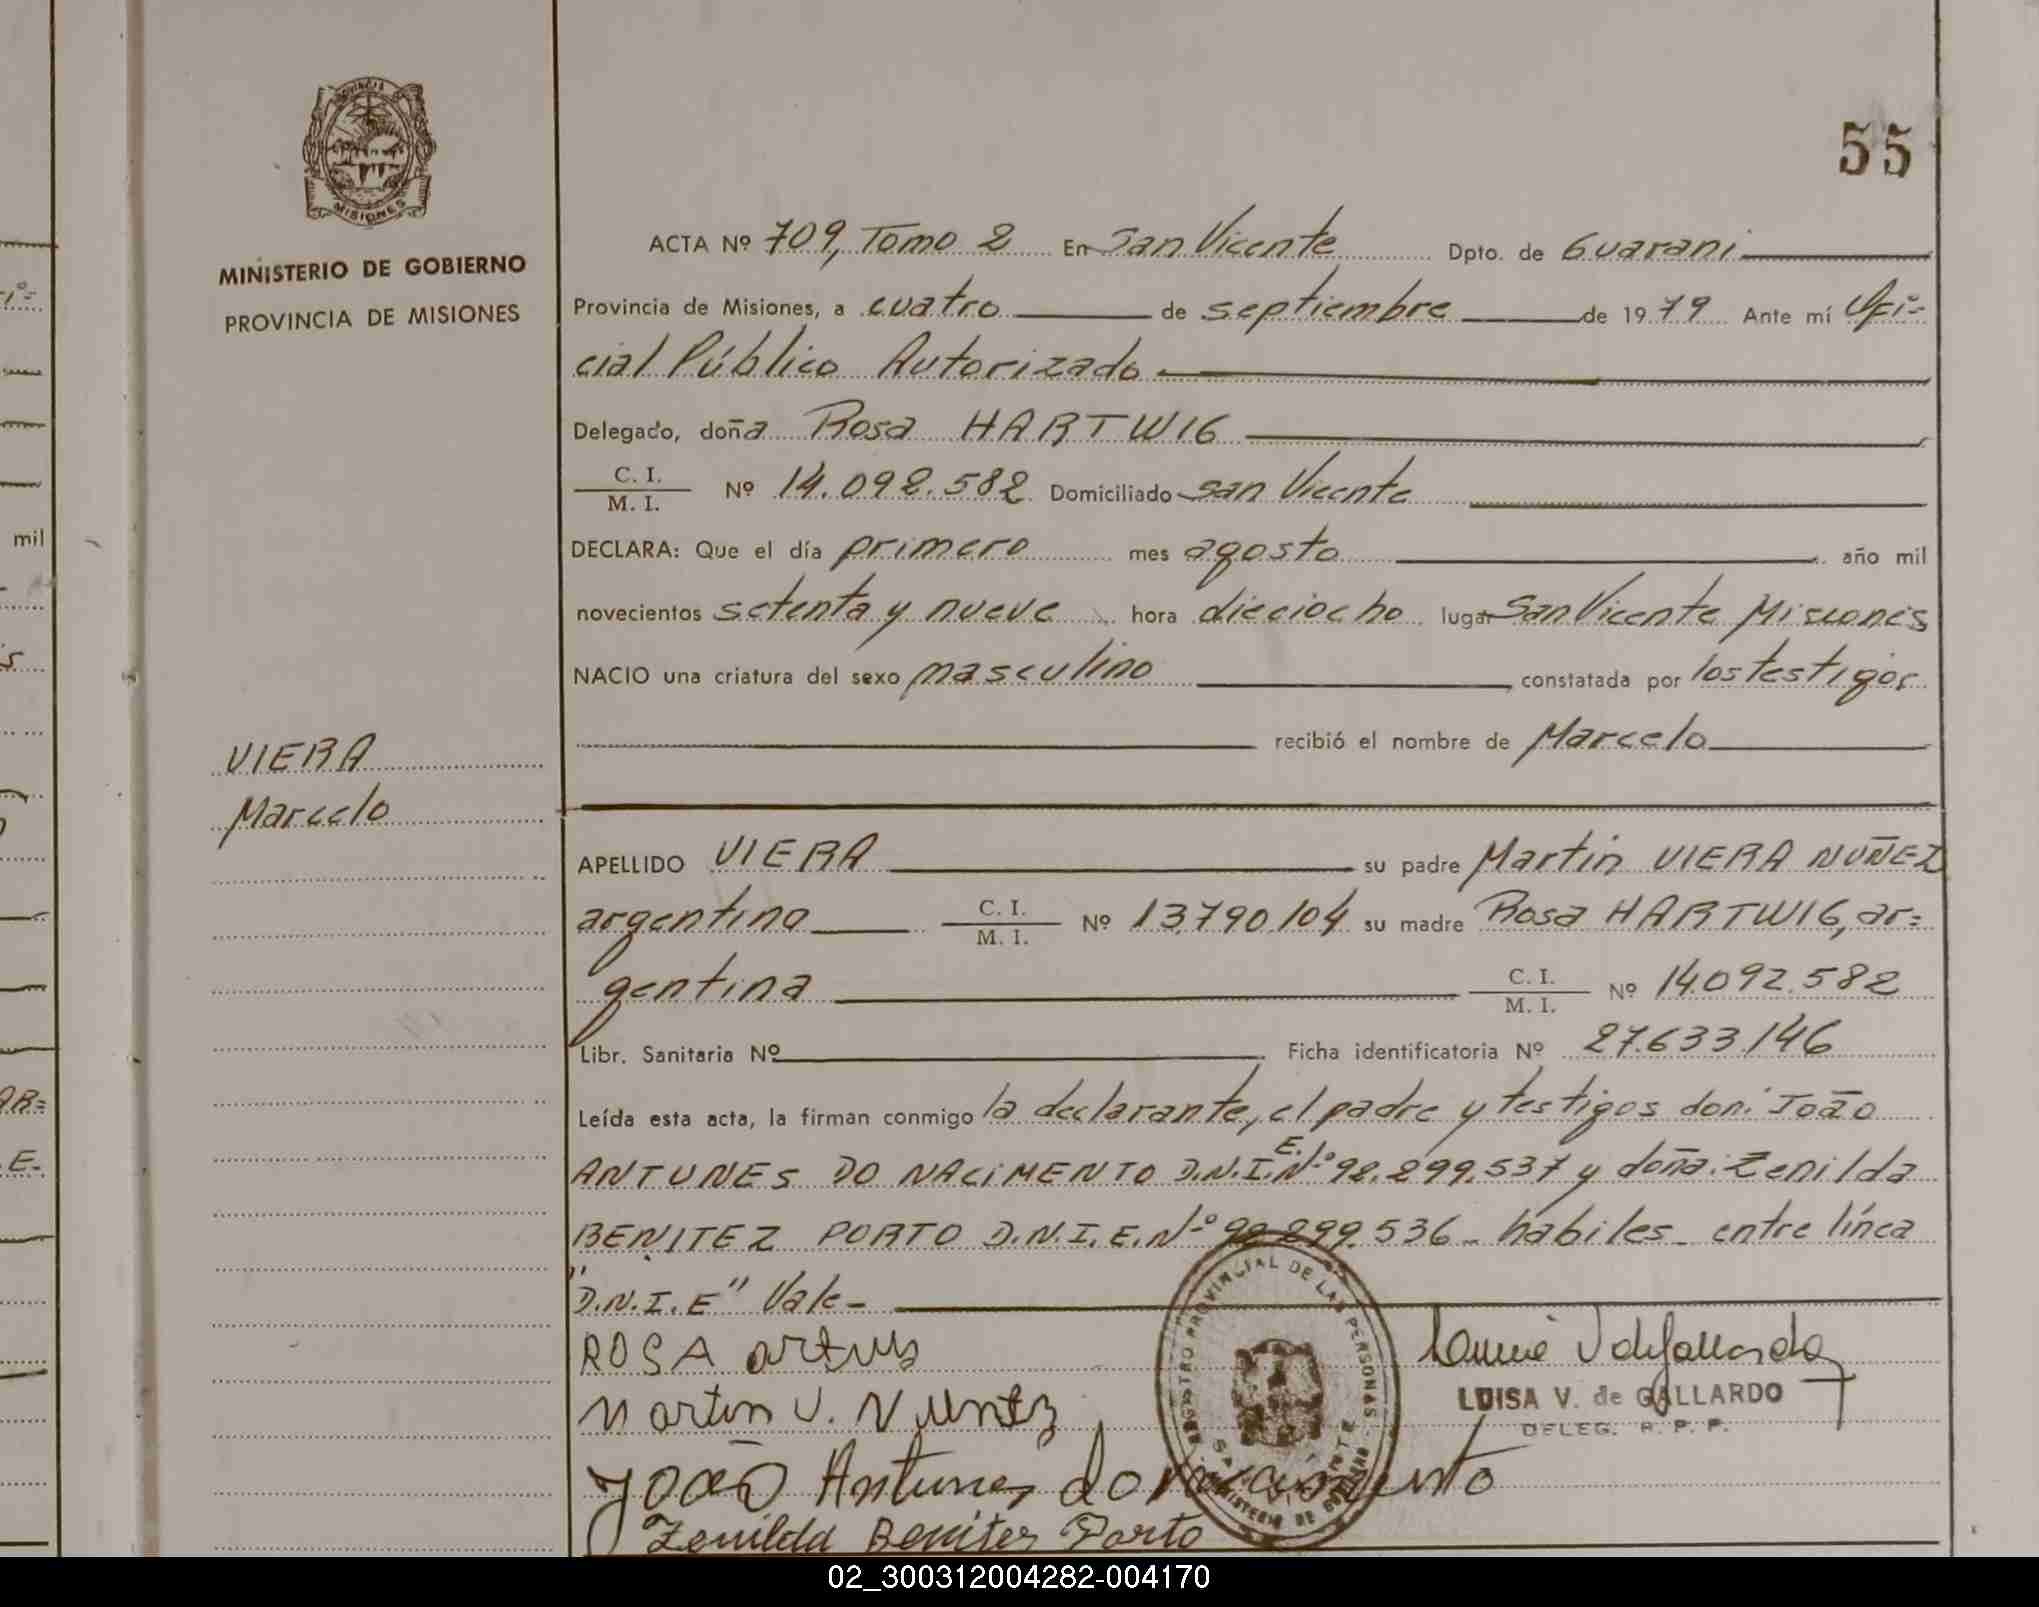 55
MISIONES
MINISTERIO DE GOBIERNO
PROVINCIA DE MISIONES
VIERA
Marcelo
ACTA Nº 709, Tomo 2 En San Vicente Dpto. de Guarani
Provincia de Misiones, a cuatro de septiembre de 1979 Ante mí Ofi=
cial Público Autorizado
Delegado, doña Rosa HARTWIG
C. I.
M. I.
Nº 14.092.582 Domiciliado San Vicente
DECLARA: Que el día primero mes agosto año mil
novecientos setenta y nueve hora dieciocho lugar San Vicente Misiones
NACIO una criatura del sexo masculino constatada por los testigos
recibió el nombre de Marcelo
APELLIDO VIERA su padre Martin VIERA NUÑEZ
argentino C. I. M. I. Nº 13.790.104 su madre Rosa HARTWIG, ar=
gentina C. I. M. I. Nº 14.092.582
Libr. Sanitaria Nº Ficha identificatoria Nº 27.633.146
Leída esta acta, la firman conmigo la declarante, el padre y testigos don: João
ANTUNES DO NACIMENTO D.N.I.E. Nº 92.299.537 y doña: Zenilda
BENITEZ PORTO D.N.I.E. Nº 92.299.536 - habiles - entre línea
"D.N.I.E" Vale -
ROSA
Martin V. Nuñez
João Antunes do Nacimento
Zenilda Benitez Porto
REGISTRO PROVINCIAL DE LAS PERSONAS
MINISTERIO DE GOBIERNO
LUISA V. de GALLARDO
DELEG. R. P. P.
mil
02_300312004282-004170